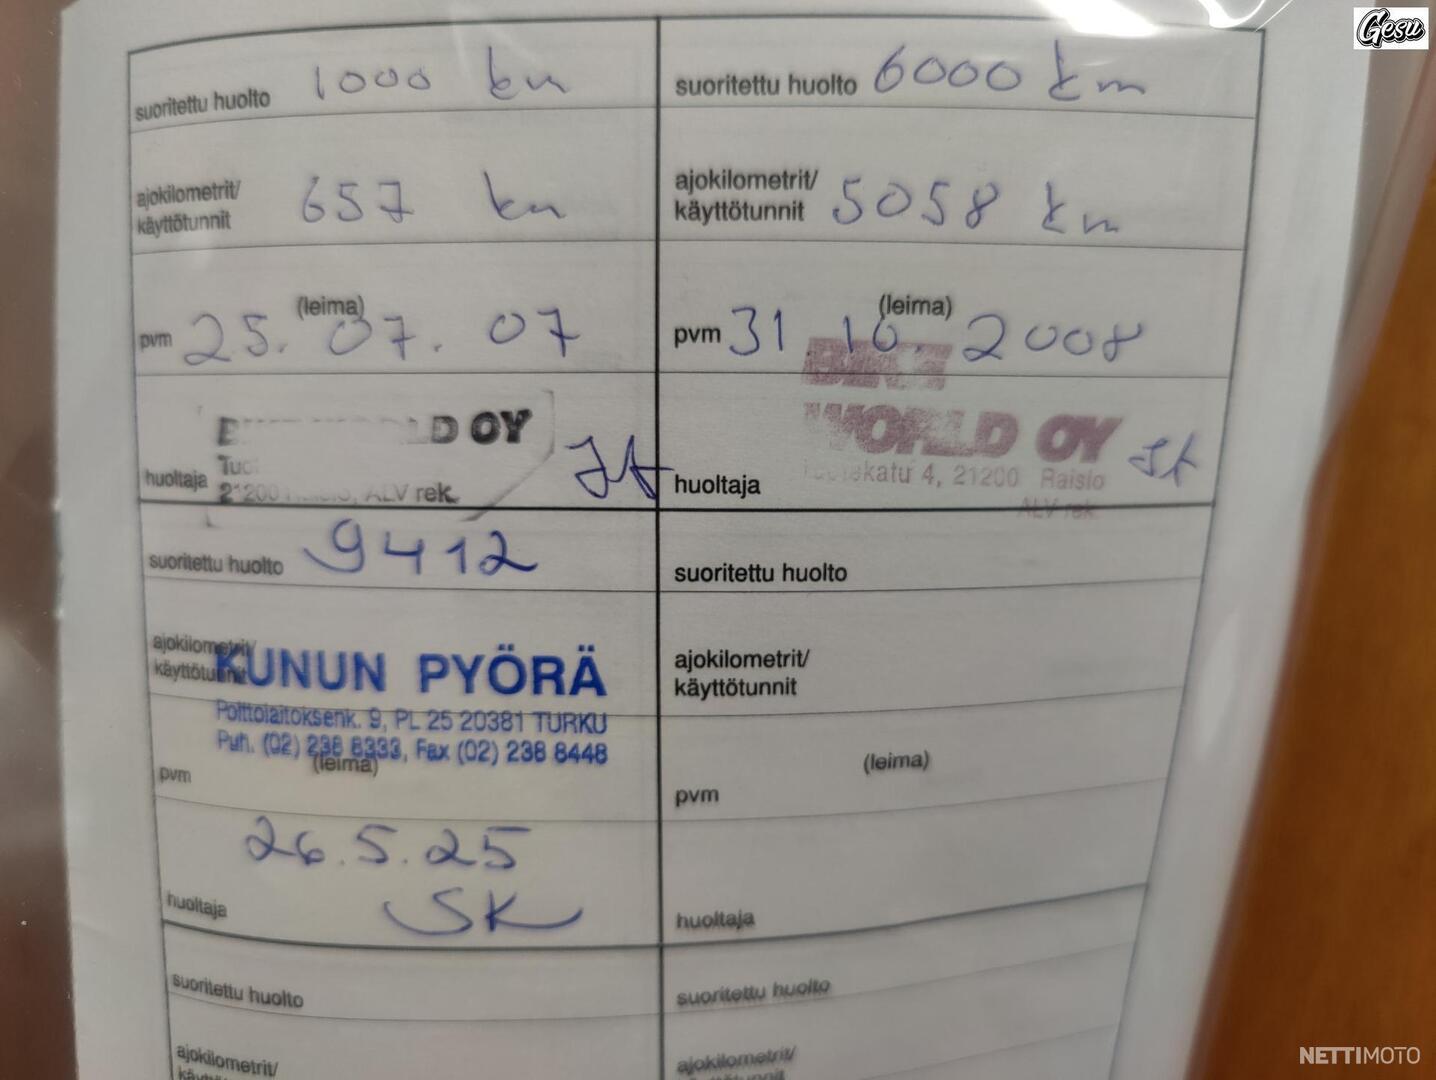 Gesu
suoritettu huolto 1000 km
ajokilometrit/
käyttötunnit 657 km
(leima)
pvm 25.07.07
WORLD OY
21200 Raisio, ALV rek.
huoltaja
suoritettu huolto 6000 km
ajokilometrit/
käyttötunnit 5058 km
(leima)
pvm 31 10. 2008
BIKE
WORLD OY
4, 21200 Raisio
ALV rek.
huoltaja
suoritettu huolto 9412
ajokilometrit/
käyttötunnit
KUNUN PYÖRÄ
Polttolaitoksenk. 9, PL 25 20381 TURKU
Puh. (02) 238 8333, Fax (02) 238 8448
(leima)
pvm
26.5.25
SK
huoltaja
suoritettu huolto
ajokilometrit/
käyttötunnit
(leima)
pvm
huoltaja
suoritettu huolto
ajokilometrit/
käyttötunnit
suoritettu huolto
ajokilometrit/
käyttötunnit
NETTIMOTO